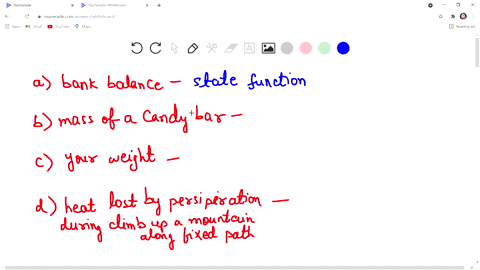 a) bank balance – state function
b) mass of a Candy bar –
c) your weight –
d) heat lost by persiperation –
during climb up a mountain
along fixed path